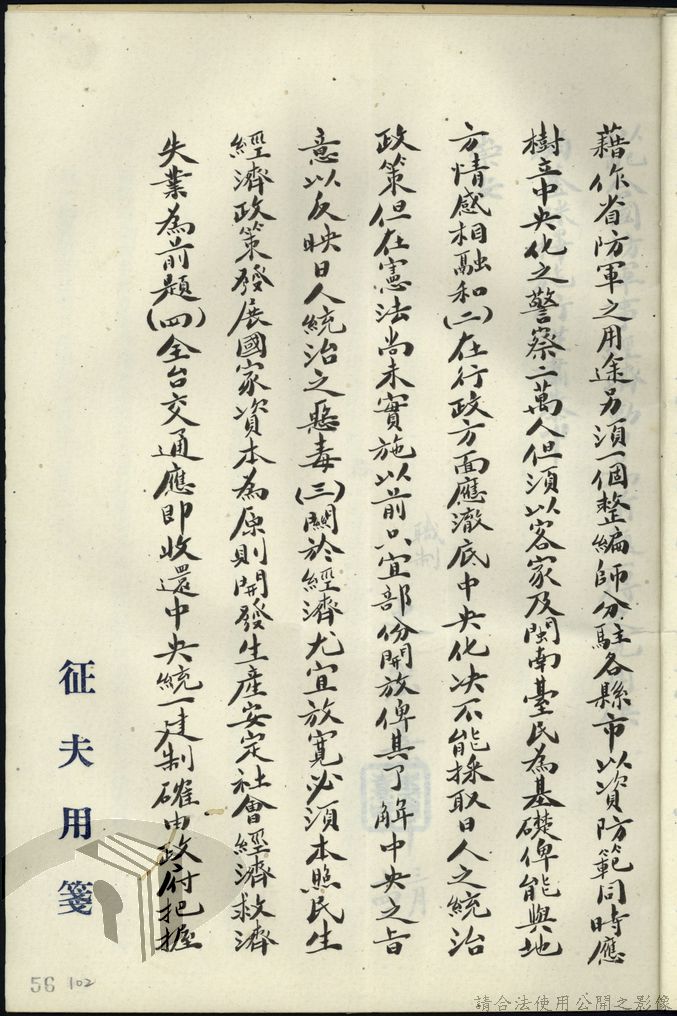 藉作省防軍之用途另須一個整編師分駐各縣市以資防範同時應
樹立中央化之警察二萬人但須以客家及閩南臺民為基礎俾能與地
方情感相融和(二)在行政方面應澈底中央化决不能採取日人之統治
政策但在憲法尚未實施以前只宜部份開放俾其了解中央之旨
意以反映日人統治之惡毒(三)關於經濟尤宜放寬必須本照民生
經濟政策發展國家資本為原則開發生產安定社會經濟救濟
失業為前題(四)全台交通應即收還中央統一建制確由政府把握
征夫用箋
56 102
請合法使用公開之影像